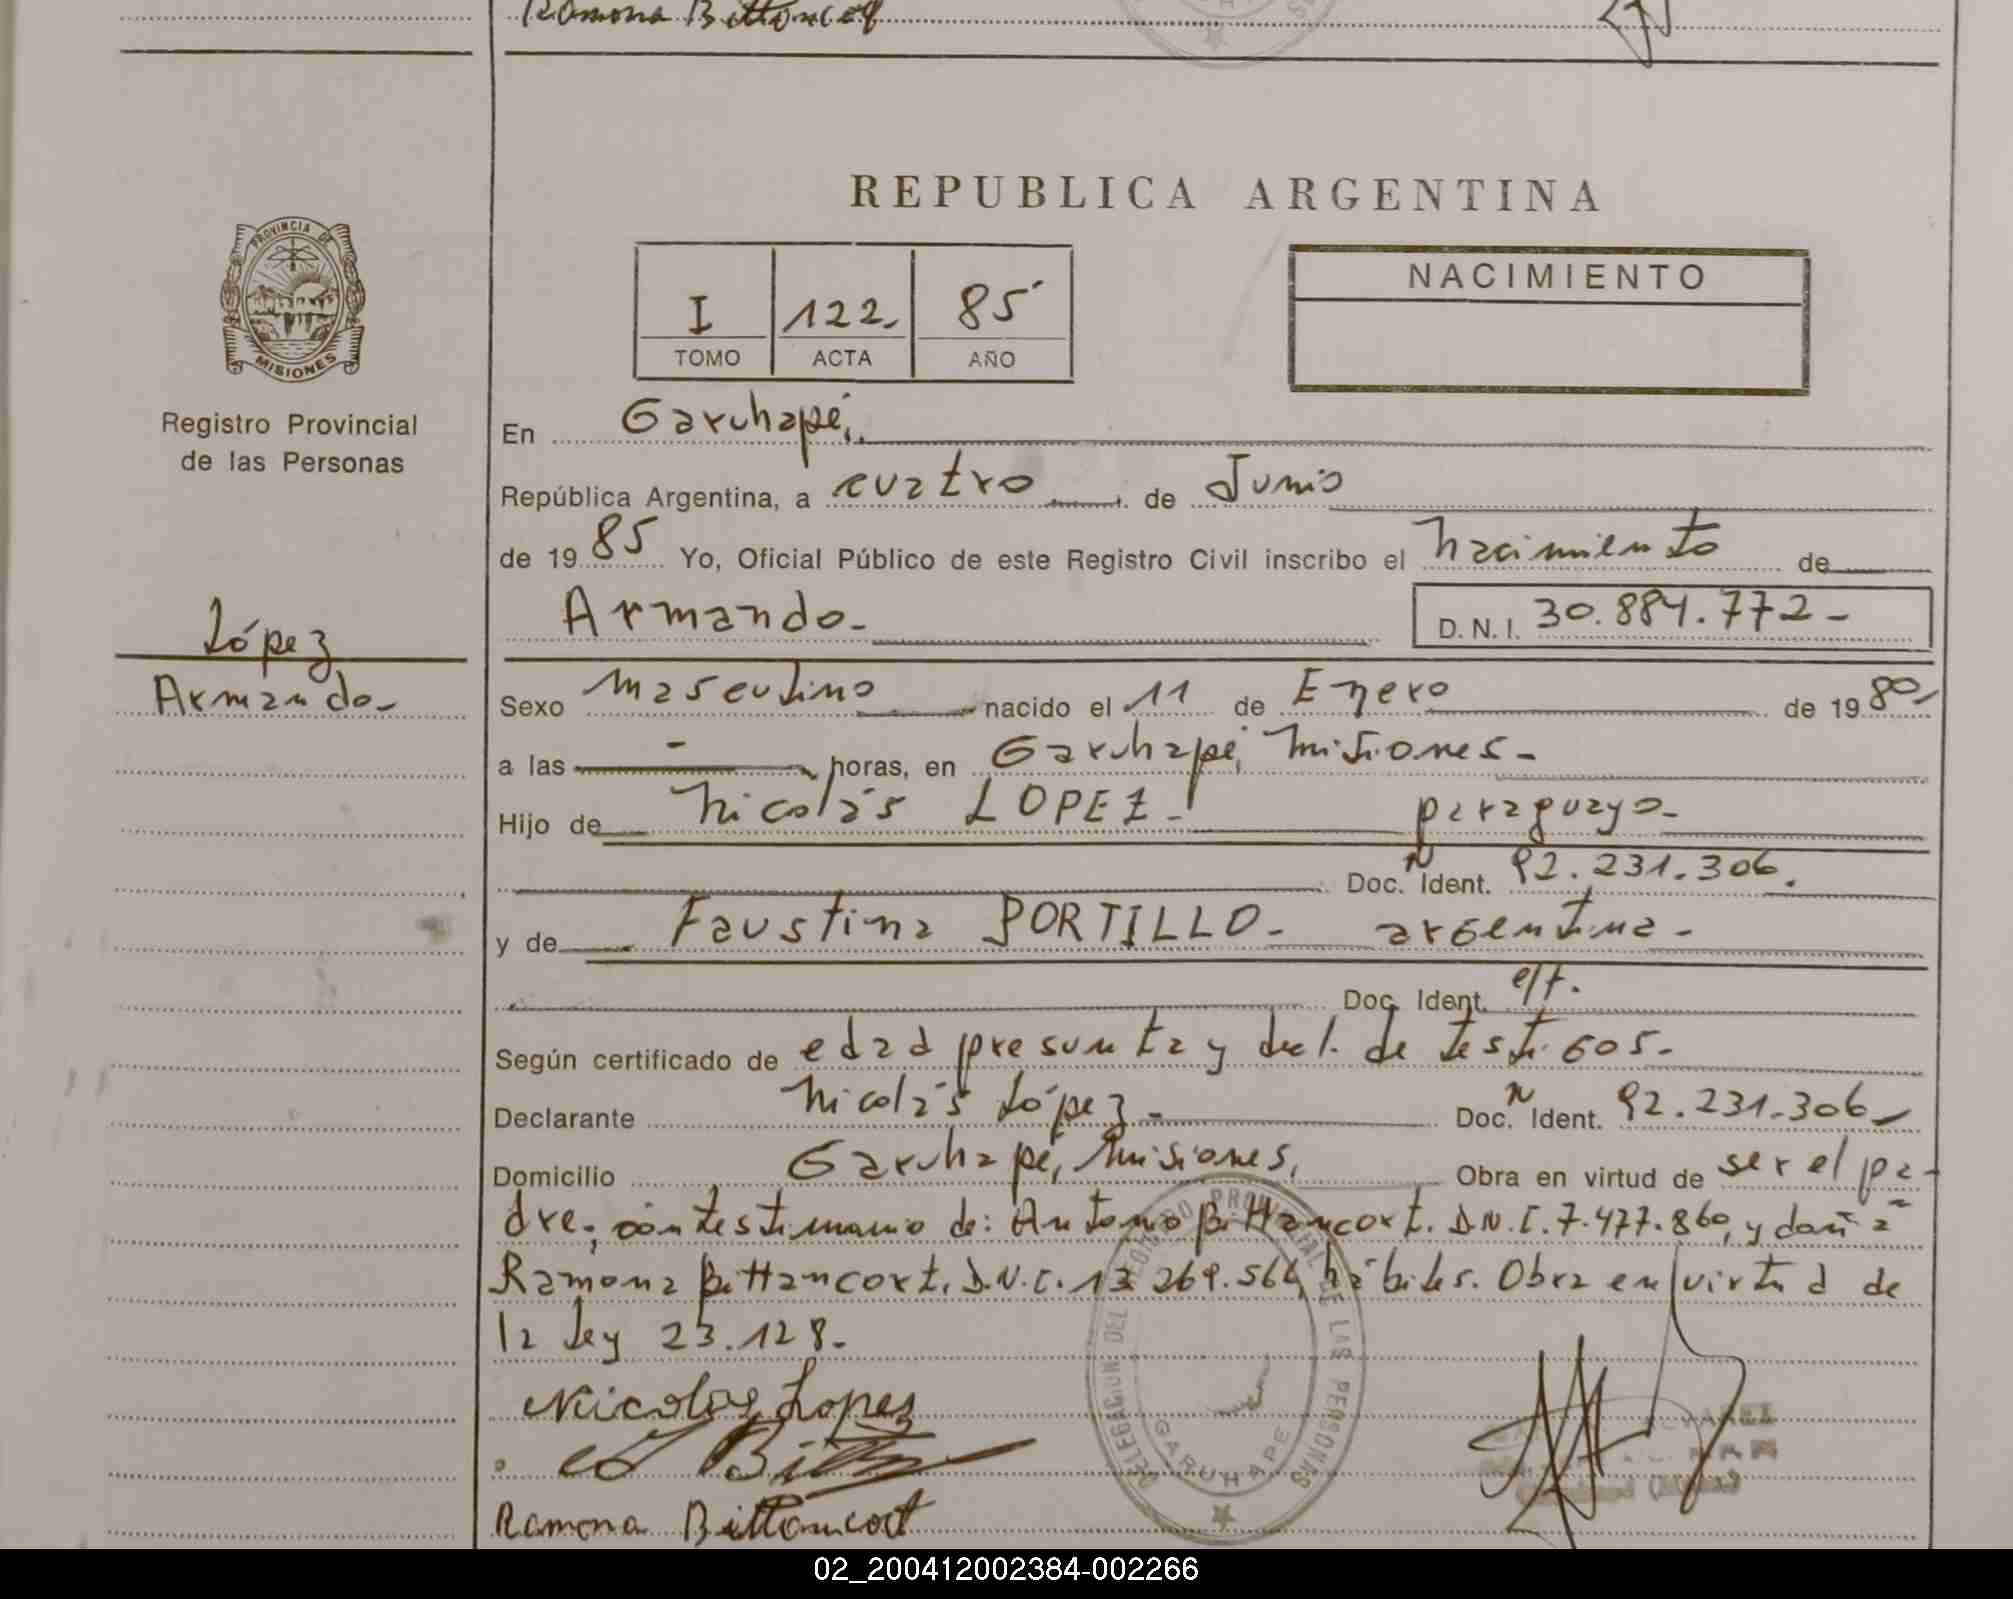 Ramona Bittoncof
REPUBLICA ARGENTINA
PROVINCIA DE
MISIONES
Registro Provincial
de las Personas
I 122. 85
TOMO ACTA AÑO
NACIMIENTO
En Garuhapé,
República Argentina, a cuatro de Junio
de 1985 Yo, Oficial Público de este Registro Civil inscribo el nacimiento de
Armando- D. N. I. 30.884.772-
López
Armando-
Sexo masculino nacido el 11 de Enero de 1980-
a las - horas, en Garuhapé, Misiones-
Hijo de Nicolás LOPEZ- paraguayo-
Doc. N Ident. 92.231.306.
y de Faustina PORTILLO- argentina-
Doc. Ident.
Según certificado de edad presunta y decl. de testigos-
Declarante Nicolás López- Doc. N Ident. 92.231.306-
Domicilio Garuhapé, Misiones, Obra en virtud de ser el pa-
dre, con testimonio de: Antonio Bittancort. D.N.I. 7.477.860, y doña
Ramona Bittancort. D.N.I. 13.269.566, hábiles. Obra en virtud de
la ley 23.128-
Nicolas Lopez
Ramona Bittancort
DELEGACION DEL REGISTRO PROVINCIAL DE LAS PERSONAS
GARUHAPE
02_200412002384-002266